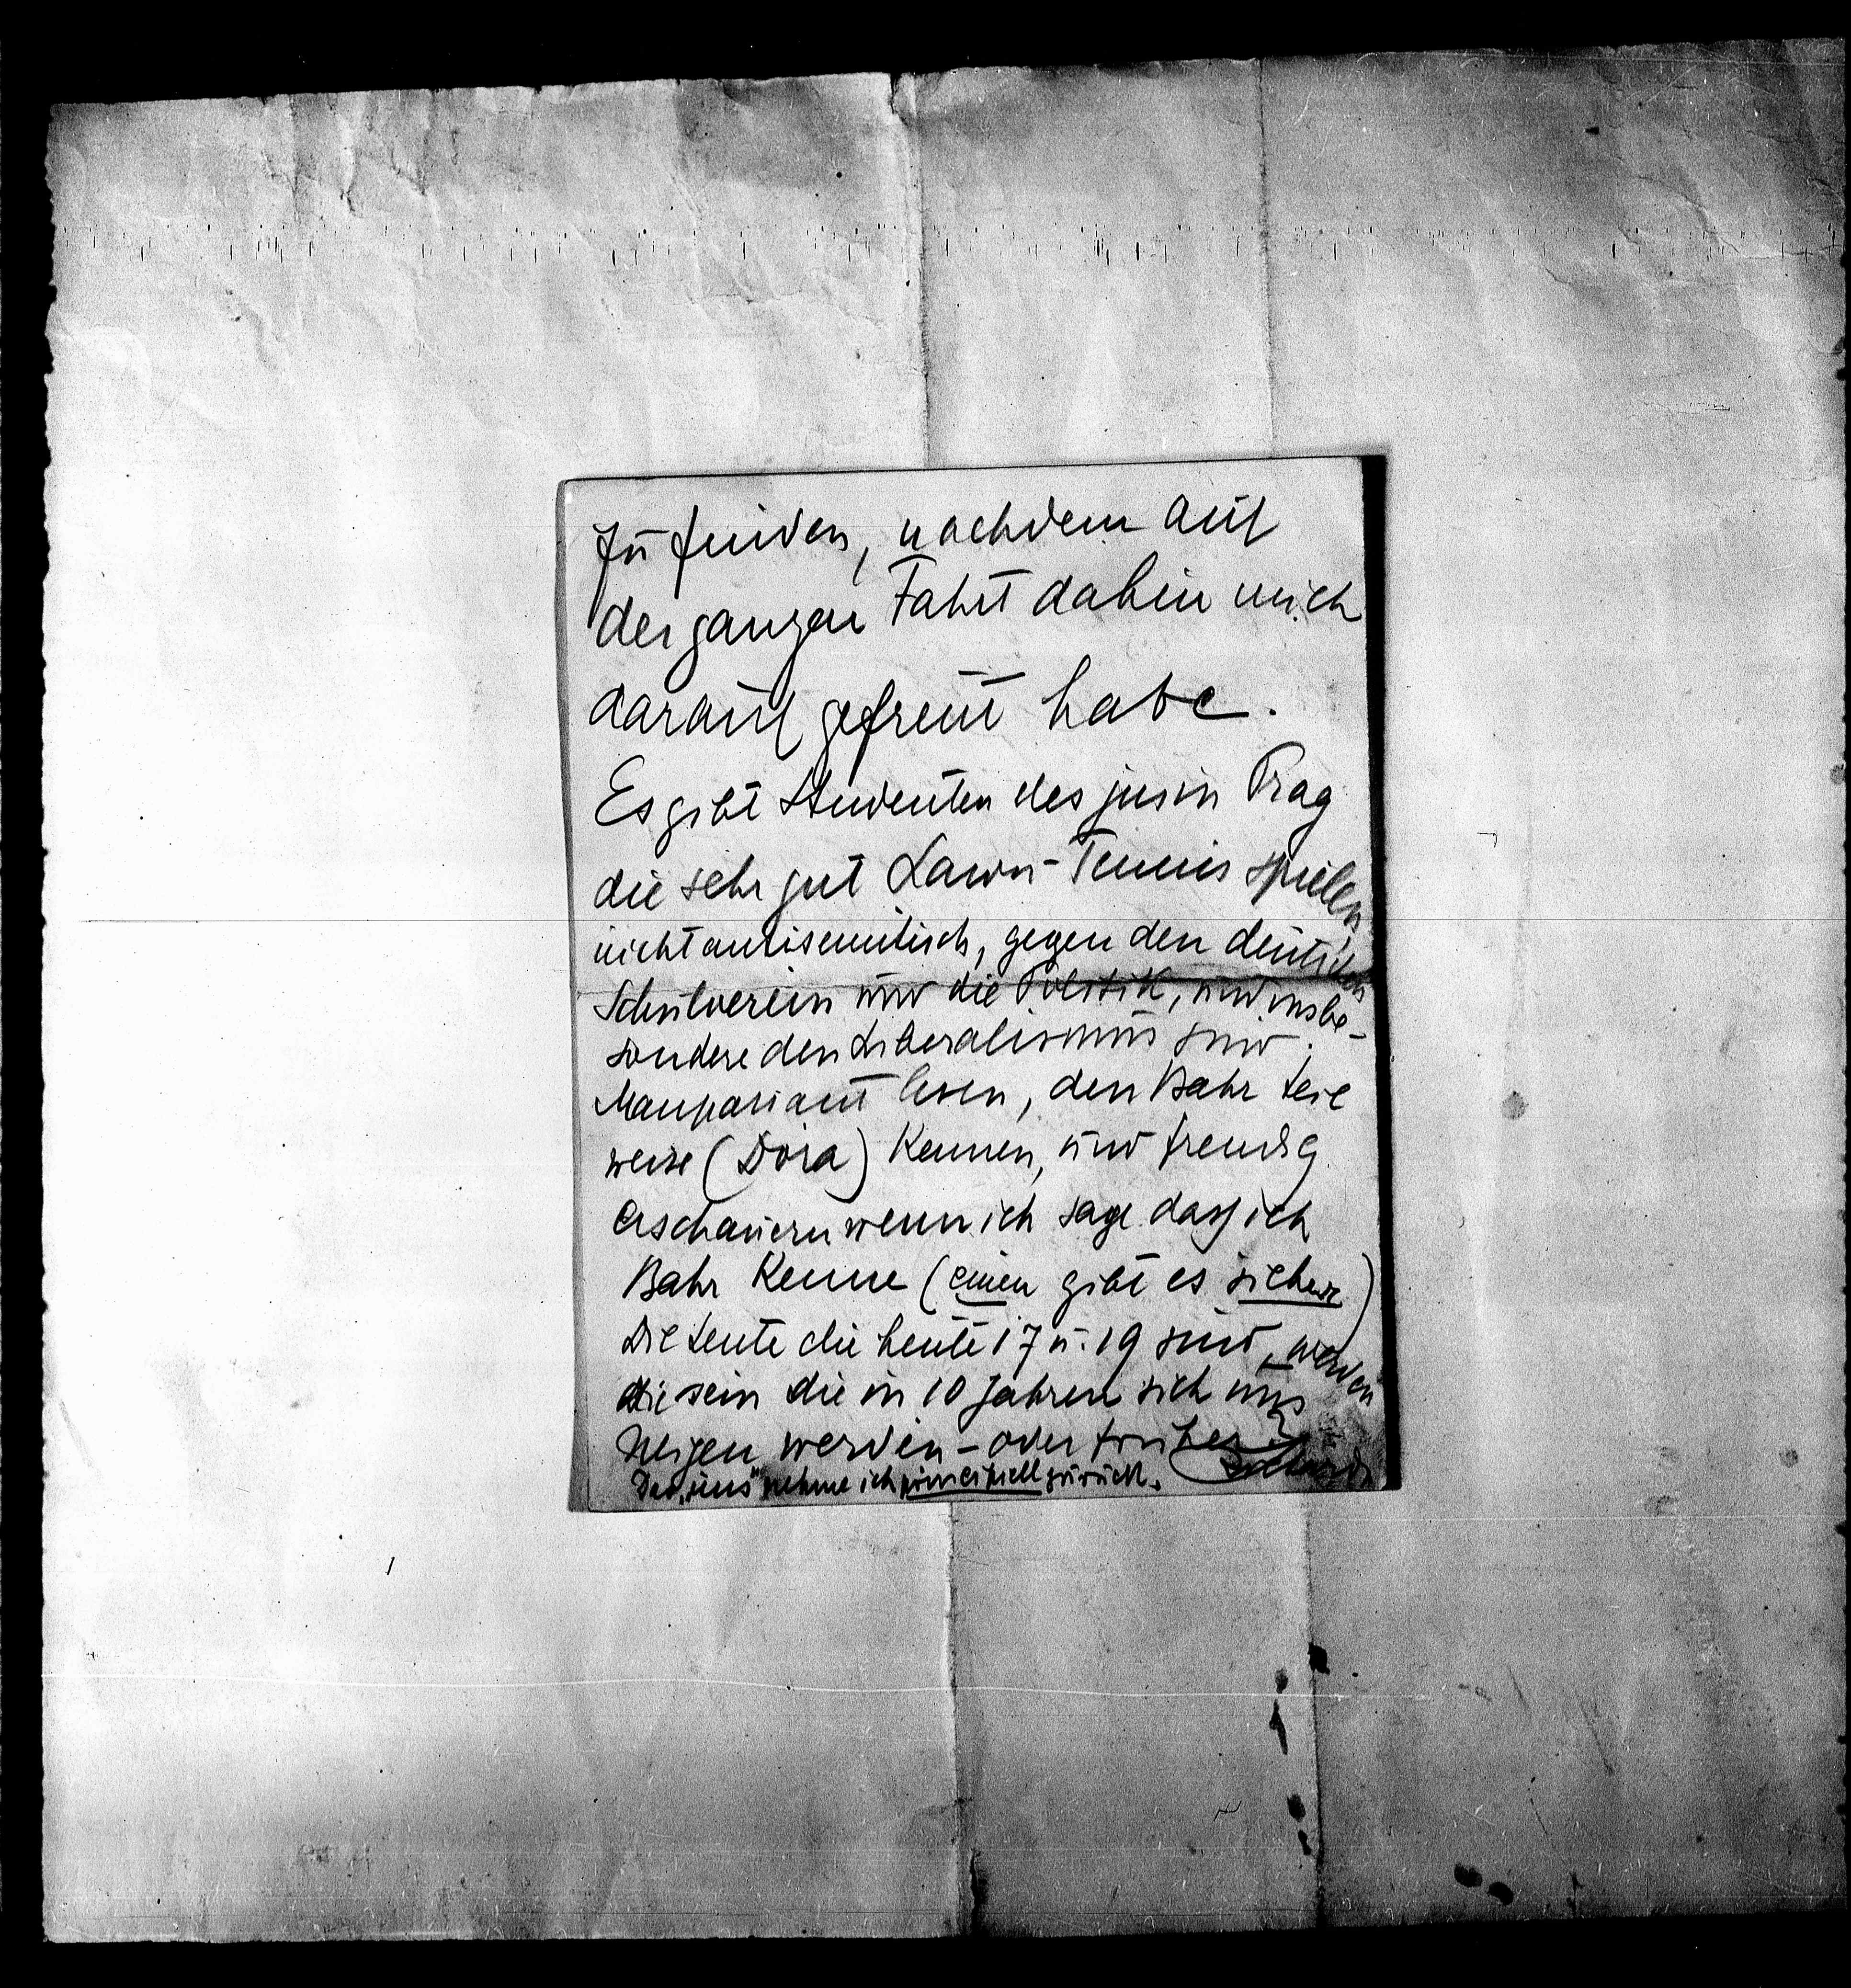 zu finden, nachdem auf
der ganzen Fahrt dahin mich
darauf gefreut habe.
Es gibt Studenten des jus in Prag
die sehr gut Lawn-Tennis spielen,
nicht antisemitisch, gegen den deutschen
Schulverein und die Politik, und insbe-
sondere den Liberalismus sind.
Maupassant lesen, den Bahr teil
weise (Dora) kennen, und freudig
erschauern wenn ich sage dass ich
Bahr kenne (einen gibt es sicher)
Die Leute die heute 17 u. 19 sind, werden
die sein die in 10 Jahren sich uns
neigen werden – oder früher?
Das „uns" nehme ich principiell zurück.